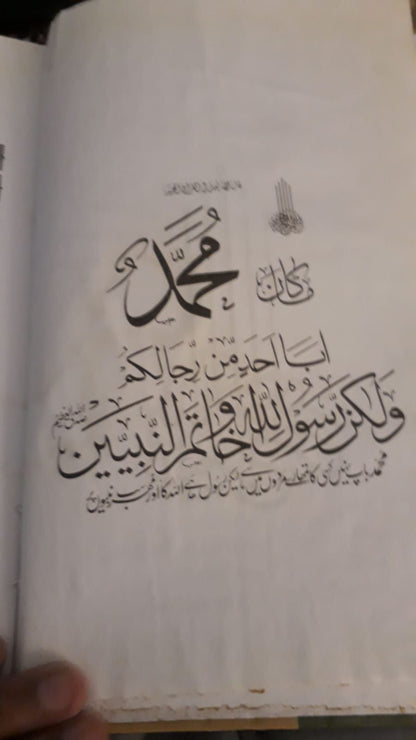 مَا كَانَ مُحَمَّدٌ
اَبَا اَحَدٍ مِّنْ رِّجَالِكُمْ
وَلٰكِنْ رَّسُوْلَ اللّٰهِ وَخَاتَمَ النَّبِيّٖنَ
محمد باپ نہیں کسی کا تمہارے مردوں میں سے لیکن رسول ہے اللہ کا اور مہر سب نبیوں پر